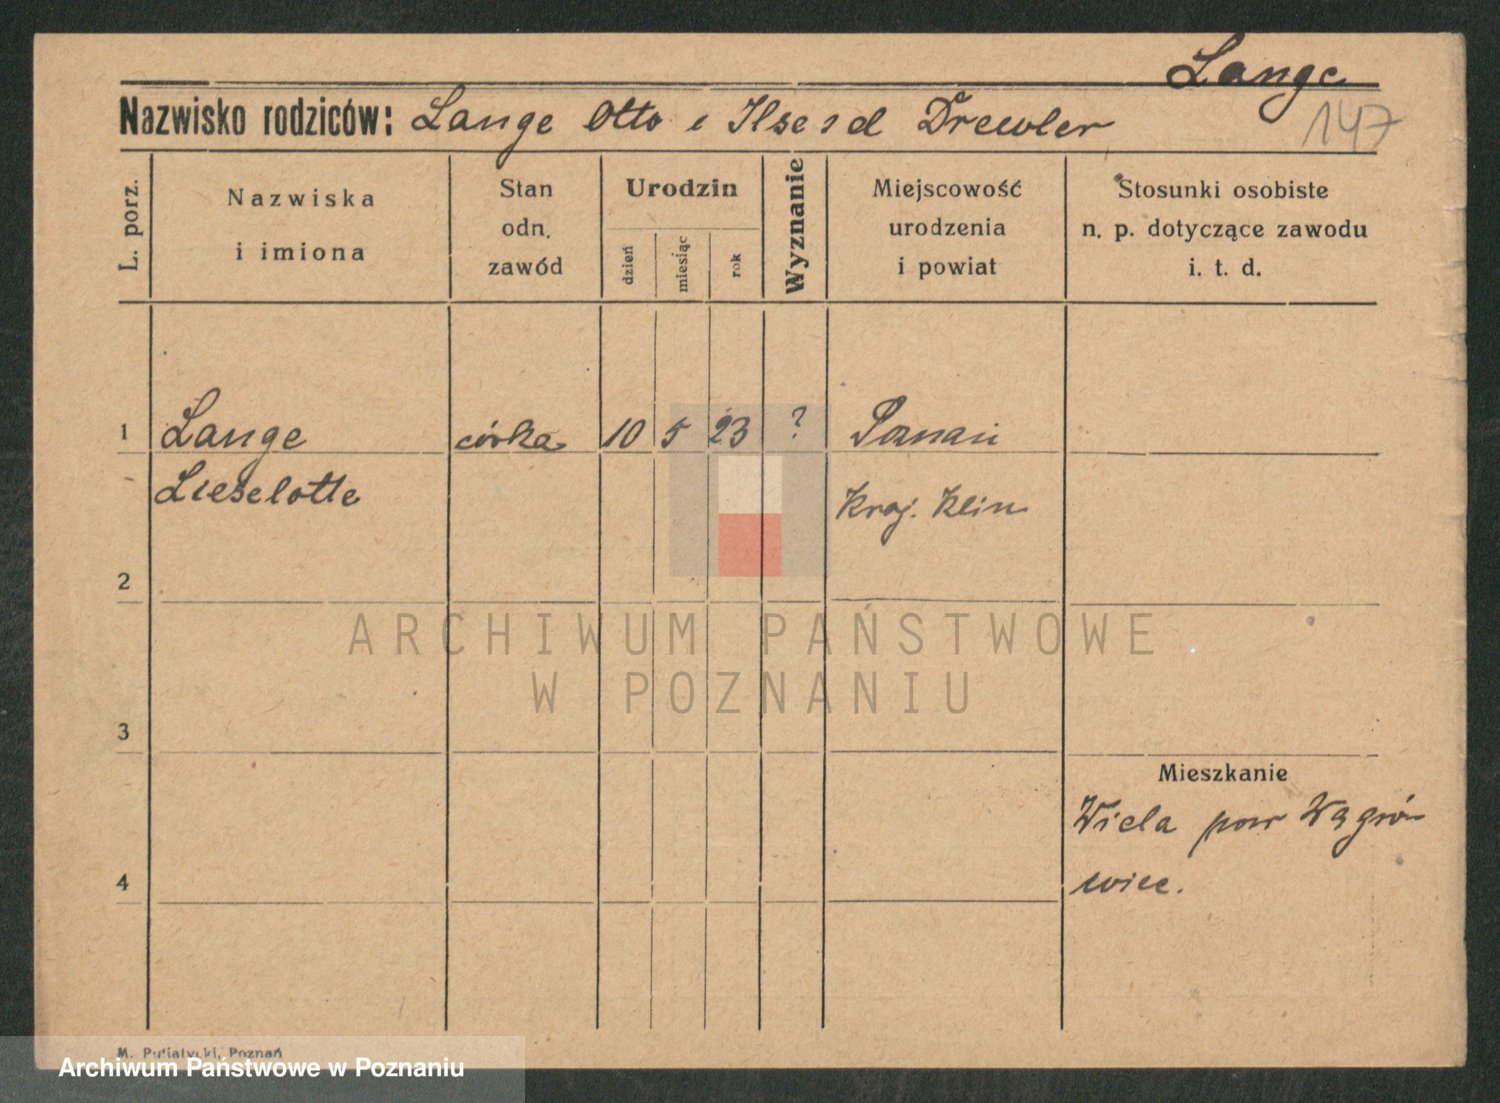 Lange
147
Nazwisko rodziców: Lange Otto i Ilse z d Drewler
L. porz.
Nazwiska
i imiona
Stan
odn.
zawód
Urodzin
dzień
miesiąc
rok
Wyznanie
Miejscowość
urodzenia
i powiat
Stosunki osobiste
n. p. dotyczące zawodu
i. t. d.
1 Lange córka 10 5 23 ? Poznań
Lieselotte Kraj. Klin
2
ARCHIWUM PAŃSTWOWE
W POZNANIU
3
Mieszkanie
Wiela pow Wągró-
4
wiec.
M. Putiatycki, Poznań
Archiwum Państwowe w Poznaniu